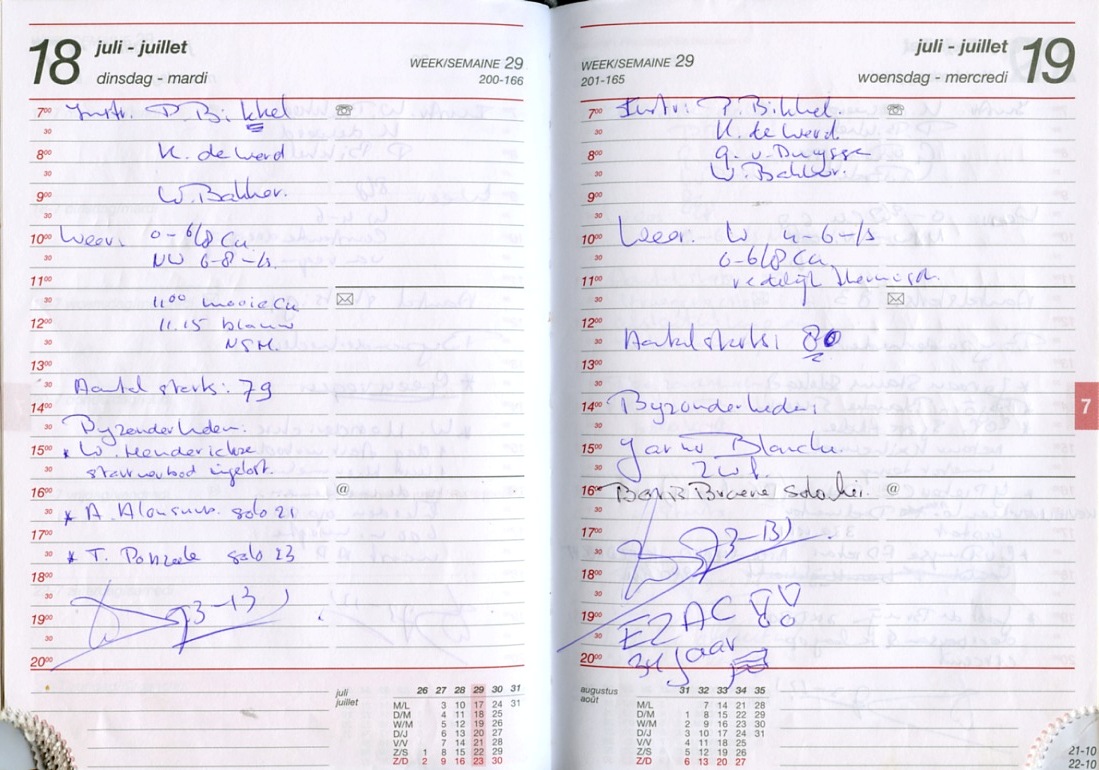 18
juli - juillet
dinsdag - mardi
WEEK/SEMAINE 29
200-166
7⁰⁰ Instr. P. Bikkel
30
8⁰⁰ K. de Werd
30
9⁰⁰ W. Bakker.
30
10⁰⁰ Weer: 0-6/8 Cu
30 NW 6-8 m/s.
11⁰⁰
30 11⁰⁰ mooie Cu
12⁰⁰ 11.15 blauw
30
13⁰⁰
30 Aantal starts: 79
14⁰⁰
30 Byzonderheden:
15⁰⁰ * W. Henderickse
30 startverbod ingelost.
16⁰⁰
30 * A. solo 21
17⁰⁰
30 * T. solo 23
18⁰⁰
30 73-13
19⁰⁰
30
20⁰⁰
juli
juillet
26 27 28 29 30 31
M/L 3 10 17 24 31
D/M 4 11 18 25
W/M 5 12 19 26
D/J 6 13 20 27
V/V 7 14 21 28
Z/S 1 8 15 22 29
Z/D 2 9 16 23 30
WEEK/SEMAINE 29
201-165
juli - juillet
woensdag - mercredi
19
7⁰⁰ Instr: P. Bikkel.
30 K. de Werd
8⁰⁰ G. v. Duysse
30 W. Bakker.
9⁰⁰
30
10⁰⁰ Weer. W 4-6 m/s
30 0-6/8 Cu
11⁰⁰ redelijk thermisch.
30
12⁰⁰
30 Aantal starts: 80
13⁰⁰
30
14⁰⁰ Byzonderheden:
30
15⁰⁰ Jarno
30
16⁰⁰ Boris
30
17⁰⁰ 73-13
30
18⁰⁰
30
19⁰⁰ EZAC
30 34 jaar
20⁰⁰
7
augustus
août
31 32 33 34 35
M/L 7 14 21 28
D/M 1 8 15 22 29
W/M 2 9 16 23 30
D/J 3 10 17 24 31
V/V 4 11 18 25
Z/S 5 12 19 26
Z/D 6 13 20 27
21-10
22-10